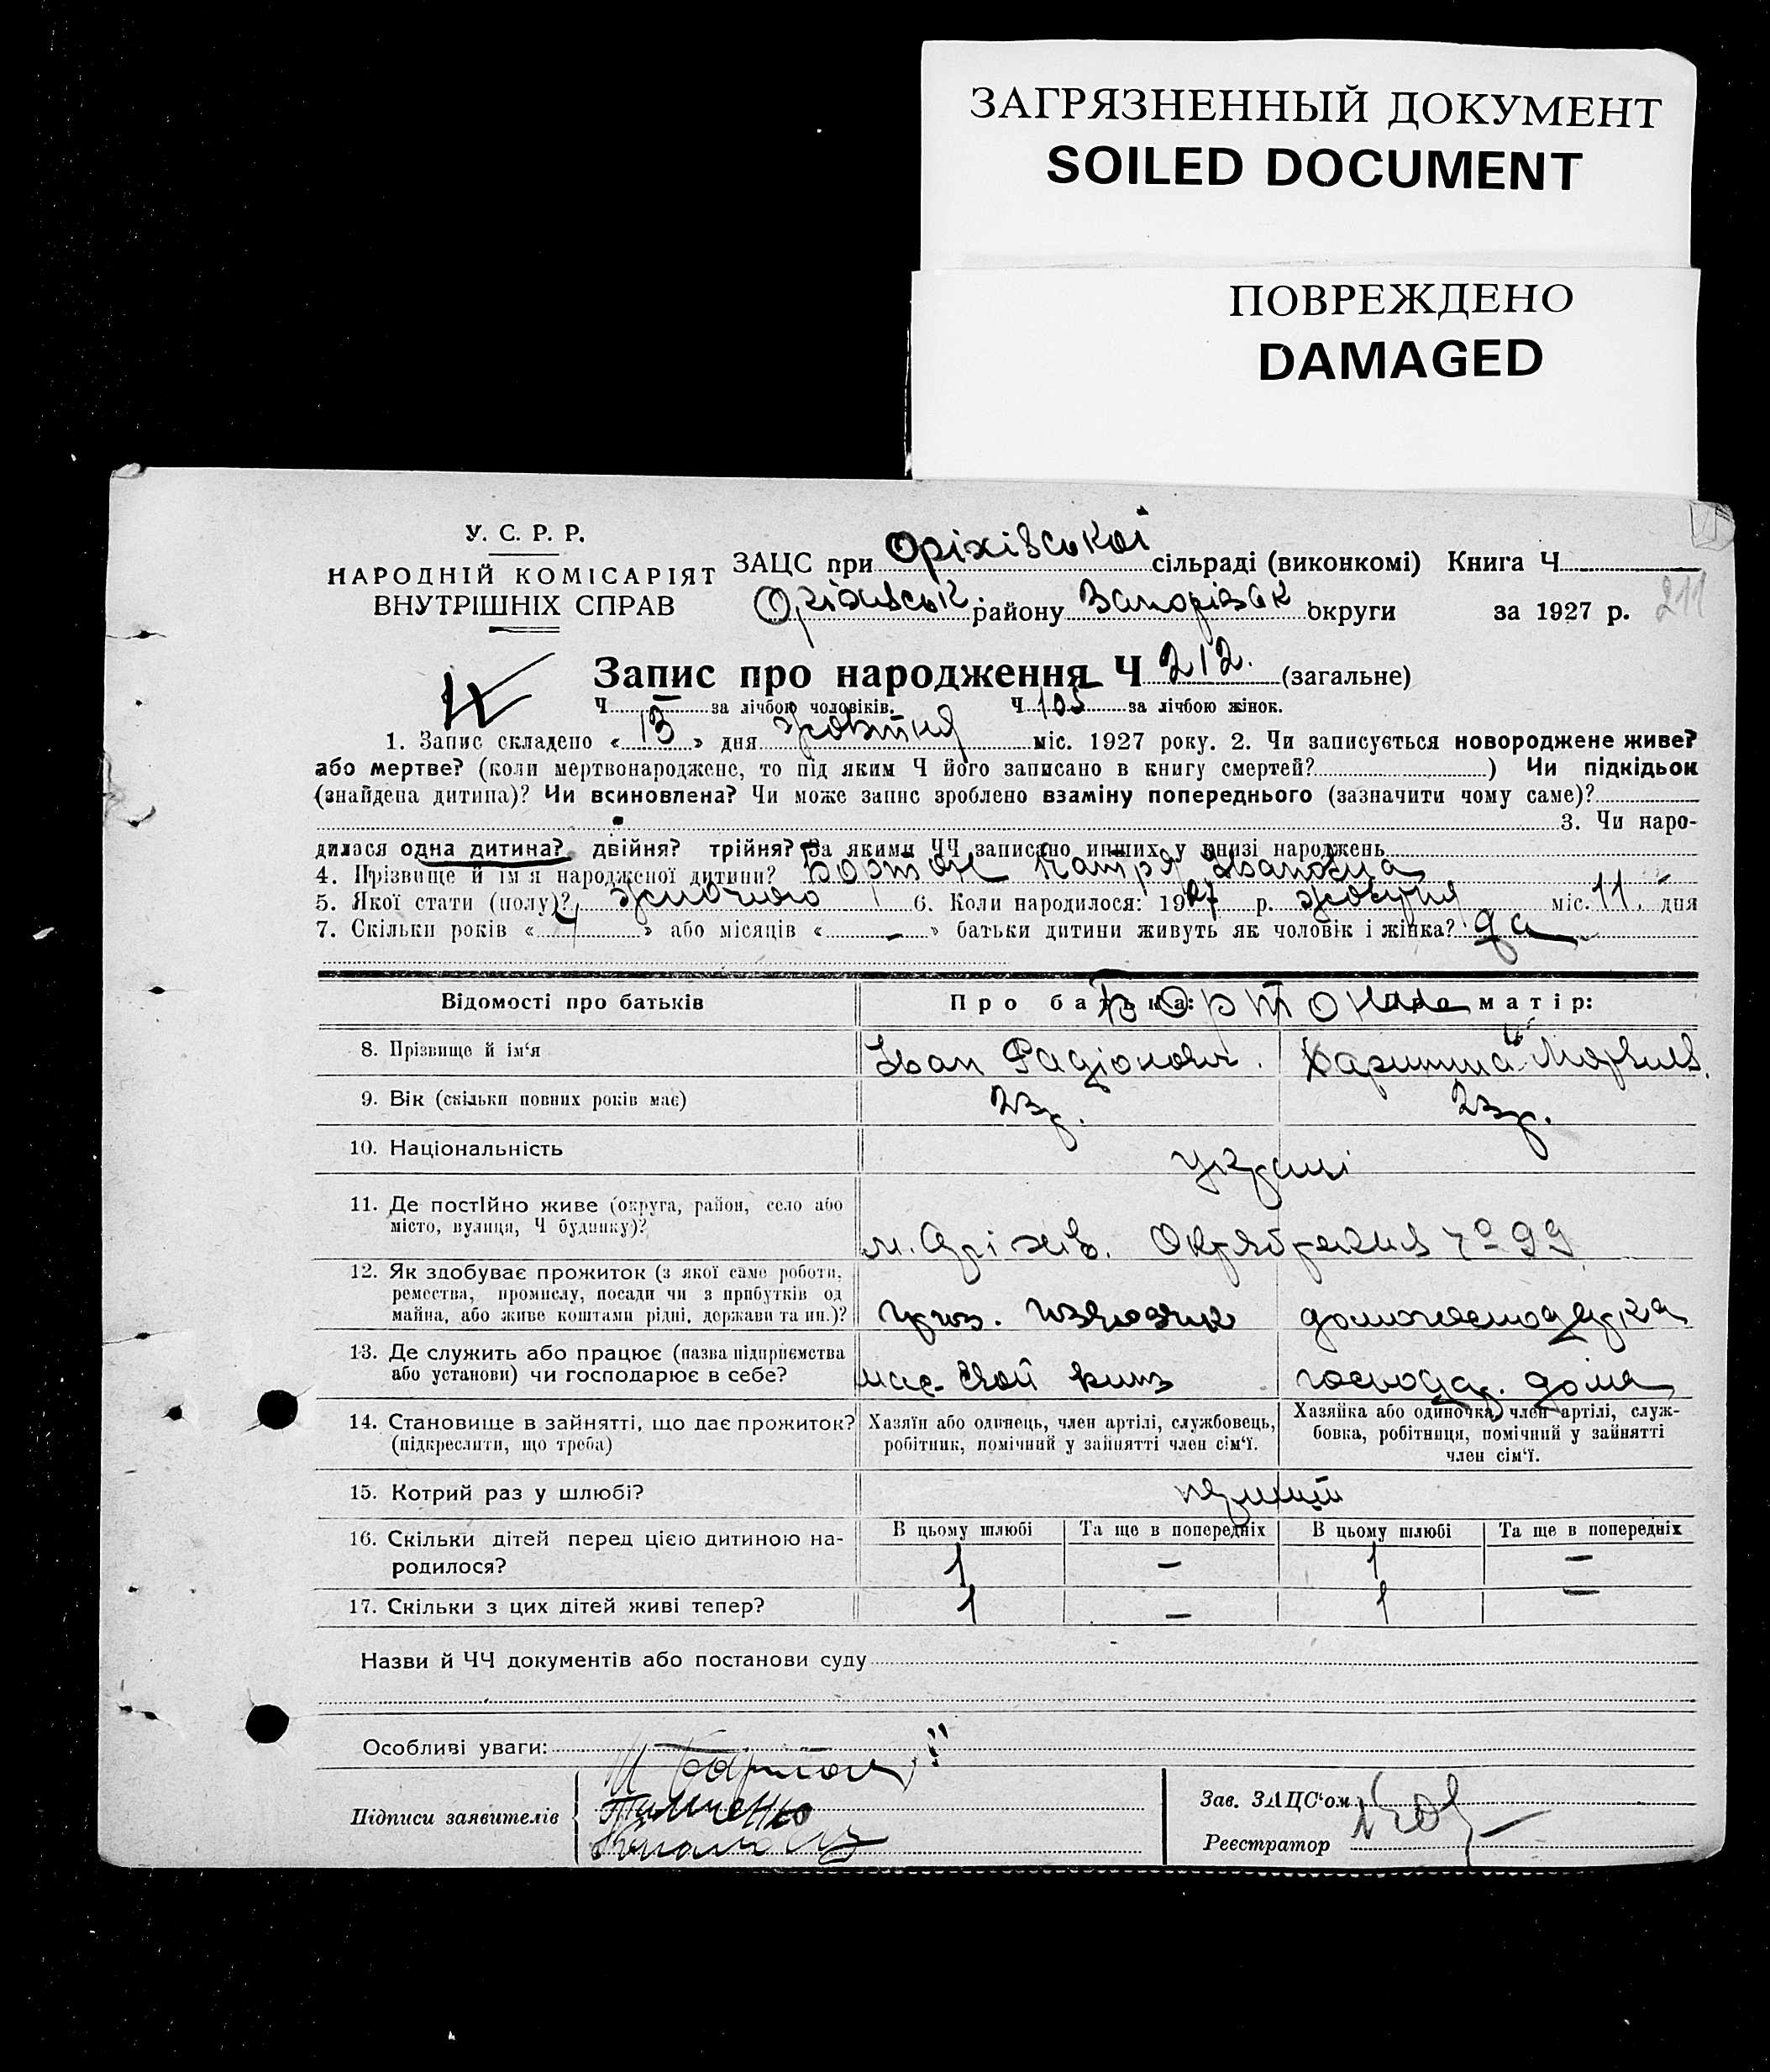 ЗАГРЯЗНЕННЫЙ ДОКУМЕНТ
SOILED DOCUMENT
ПОВРЕЖДЕНО
DAMAGED
У. С. Р. Р.
НАРОДНІЙ КОМІСАРІЯТ
ВНУТРІШНІХ СПРАВ
ЗАЦС при Оріхівської сільраді (виконкомі) Книга Ч
Оріхівськ. району Запорізьк округи за 1927 р. 211
Запис про народження Ч 212. (загальне)
Ч — за лічбою чоловіків. Ч 105 за лічбою жінок.
1. Запис складено « 13 » дня жовтня міс. 1927 року. 2. Чи записується новороджене живе?
або мертве? (коли мертвонароджене, то під яким Ч його записано в книгу смертей? ) Чи підкідьок
(знайдена дитина)? Чи всиновлена? Чи може запис зроблено взаміну попереднього (зазначити чому саме)?
3. Чи наро-
дилася одна дитина? двійня? трійня? За якими ЧЧ записано инших у книзі народжень
4. Прізвище й ім'я народженої дитини? Бортон Катря Івановна
5. Якої стати (полу)? жіночого 6. Коли народилося: 1927 р. жовтня міс. 11 дня
7. Скільки років « 4 » або місяців « - » батьки дитини живуть як чоловік і жінка? да
Відомості про батьків
Про батька: Про матір:
Бортон
8. Прізвище й ім'я
Іван Радіонович.
9. Вік (скільки повних років має)
23 р. 23 р.
10. Національність
україні
11. Де постійно живе (округа, район, село або
місто, вулиця, Ч будинку)?
м. Оріхів. Октябрская № 99
12. Як здобуває прожиток (з якої саме роботи,
ремества, промислу, посади чи з прибутків од
майна, або живе коштами рідні, держави та ин.)?
домогосподарка
13. Де служить або працює (назва підприємства
або установи) чи господарює в себе?
має свой господар. дома
14. Становище в зайнятті, що дає прожиток?
(підкреслити, що треба)
Хазяїн або одинець, член артілі, службовець,
робітник, помічний у зайнятті член сім'ї.
Хазяйка або одиночка, член артілі, служ-
бовка, робітниця, помічний у зайнятті
член сім'ї.
15. Котрий раз у шлюбі?
перший
В цьому шлюбі Та ще в попередніх В цьому шлюбі Та ще в попередніх
16. Скільки дітей перед цією дитиною на-
родилося?
1 - 1 -
17. Скільки з цих дітей живі тепер?
1 - 1 -
Назви й ЧЧ документів або постанови суду
Особливі уваги:
И Бортон
Підписи заявителів
Тимченко
Зав. ЗАЦС'ом
Реєстратор